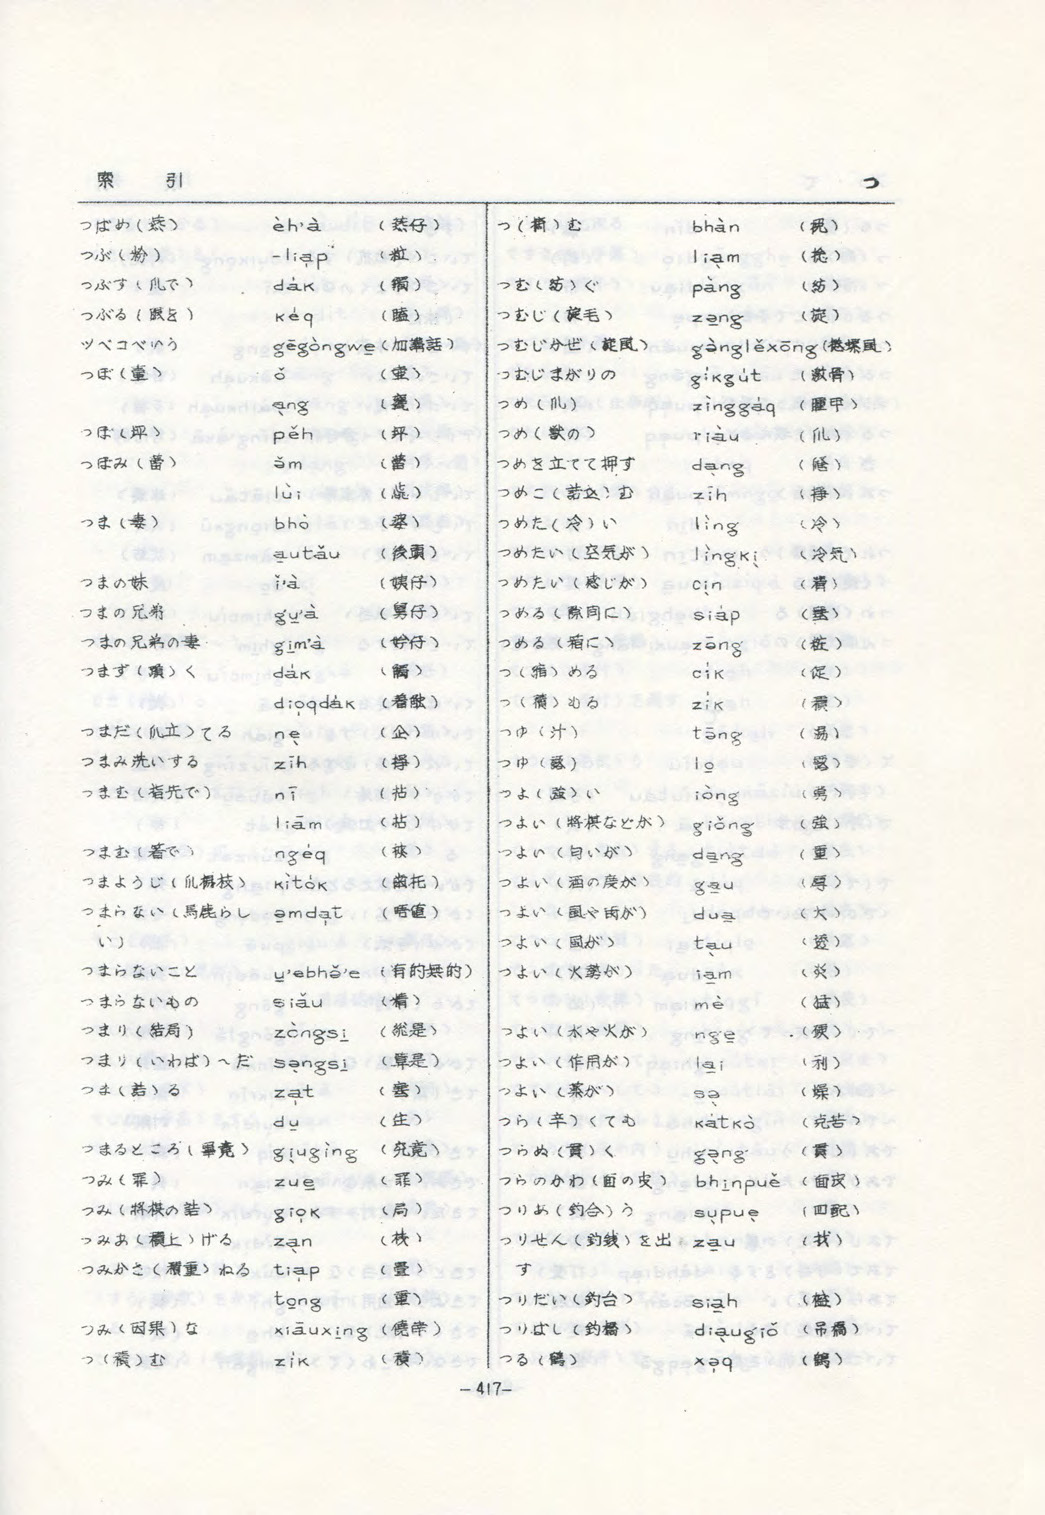 索 引
つ
つばめ(燕) èh'à (燕仔)
つぶ(粒) -liạp (粒)
つぶす(爪で) dák
つぶる(眼を) kéq (瞌)
ツベコベいう gēgòngwe̱ (加講話)
つぼ(壷) ǒ (壷)
ạng (甕)
つぼ(坪) pěh (坪)
つぼみ(蕾) ǎm (蕾)
lùi
つま(妻) bhò (婆)
a̱utǎu (後頭)
つまの妹 ǐ'à (姨仔)
つまの兄弟 gu̱'à (舅仔)
つまの兄弟の妻 gi̱m'à (妗仔)
つまず(躓)く dák (觸)
diọqdák (着触)
つまだ(爪立)てる nẹ (企)
つまみ洗いする zīh
つまむ(指先で) nī (拈)
liām (拈)
つまむ(箸で) ngéq (梜)
つまようじ(爪楊枝) kǐtók (齒托)
つまらない(馬鹿らしい) ǝmdạt (唔值)
つまらないこと u̱'ebhǒ'e (有的無的)
つまらないもの siǎu
つまり(結局) zòngsi̱ (総是)
つまり(いわば)〜だ sǝ̣ngsi̱ (算是)
つま(詰)る zạt
dụ
つまるところ(畢竟) gịugìng (究竟)
つみ(罪) zue̱ (罪)
つみ(将棋の詰) giọk (局)
つみあ(積上)げる zạn
つみかさ(積重)ねる tiạp (疊)
to̱ng (重)
つみ(因果)な xiāuxi̱ng (僥倖)
つ(積)む zik (積)
つ(摘)む bhàn
liạm (捻)
つむ(紡)ぐ pàng (紡)
つむじ(旋毛) zǝ̱ng (旋)
つむじかぜ(旋風) gànglěxōng
つむじまがりの gíkgút
つめ(爪) zìnggáq
つめ(獣の) riàu (爪)
つめを立てて押す dạng
つめこ(詰込)む zīh
つめた(冷)い lìng (冷)
つめたい(空気が) lìngkị (冷気)
つめたい(感じが) cịn
つめる(隙間に) siáp
つめる(箱に) zōng (粧)
つ(詰)める cik (促)
つ(積)もる zik (積)
つゆ(汁) tōng (湯)
つゆ(露) lo̱ (露)
つよ(強)い iòng (勇)
つよい(将棋などが) giǒng (強)
つよい(匂いが) da̱ng (重)
つよい(酒の度が) ga̱u (厚)
つよい(風や雨が) dua̱ (大)
つよい(風が) tạu (透)
つよい(火勢が) ia̱m (炎)
mè (猛)
つよい(水や火が) nge̱ (硬)
つよい(作用が) la̱i (利)
つよい(茶が) sǝ̣ (燥)
つら(辛)くても kátkò (克苦)
つらぬ(貫)く gǝ̣ng (貫)
つらのかわ(面の皮) bhi̱npuě (面皮)
つりあ(釣合)う sụpuẹ (四配)
つりせん(釣銭)を出す za̱u (找)
つりだい(釣台) sia̱h (槛)
つりばし(釣橋) diạugiǒ (吊橋)
つる(鶴) xọq (鶴)
- 417 -